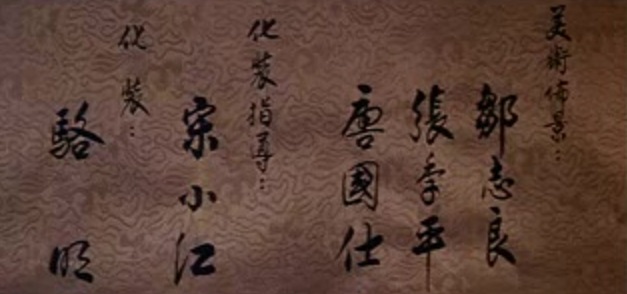 美術佈景：
鄒志良
張季平
唐國仕
化裝指導：
宋小江
化裝：
駱明